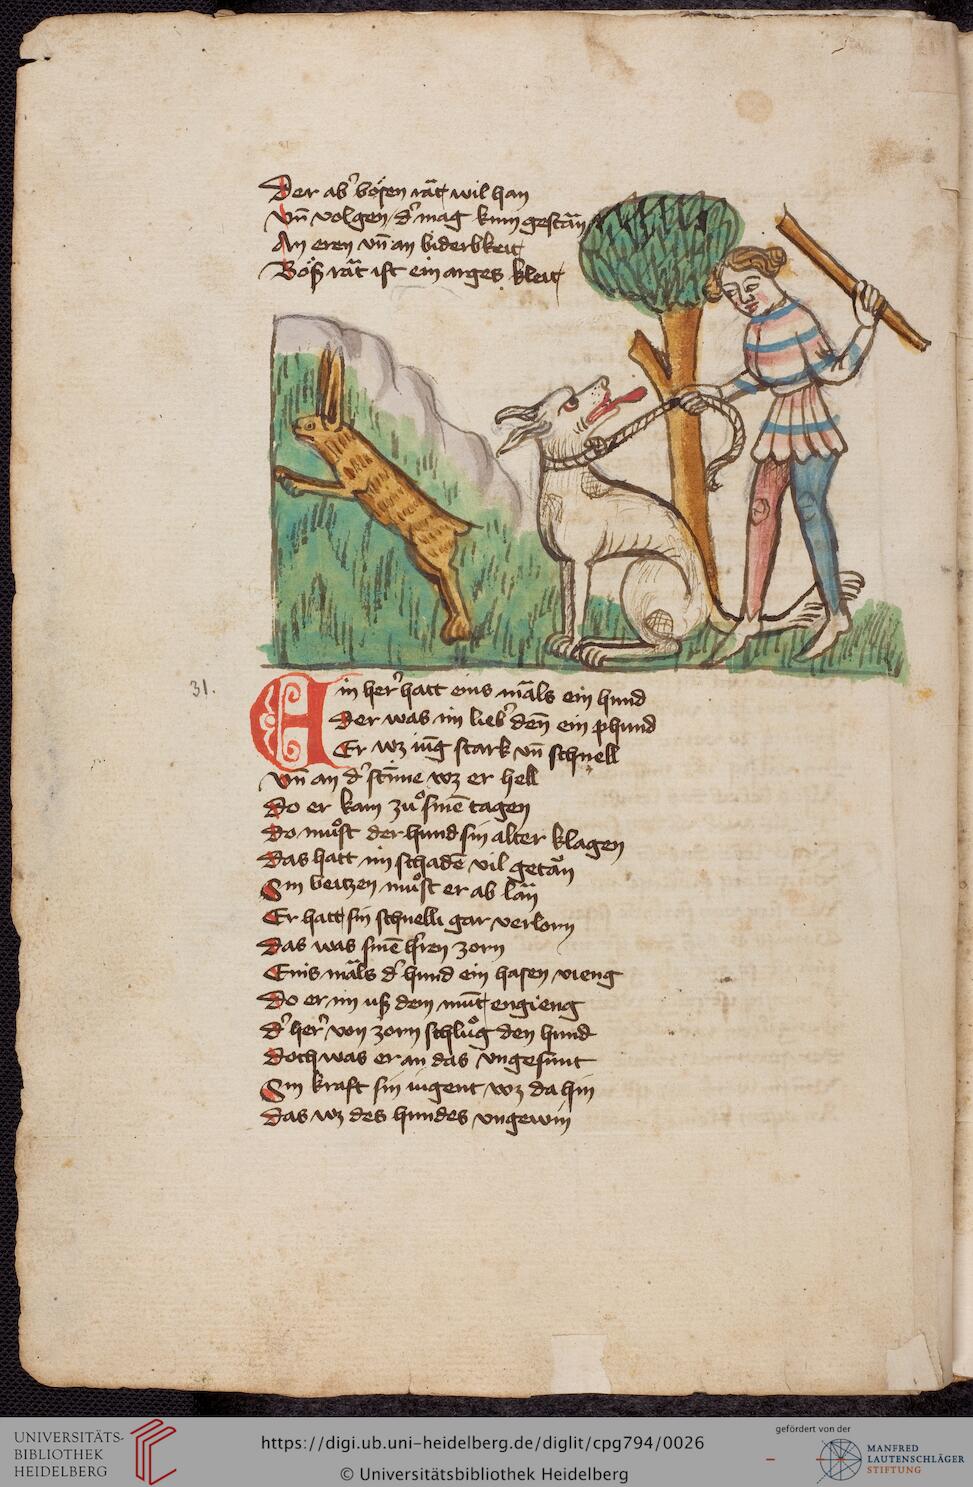 Der ab' bösen rät wil han
Vn̄ volgen d' mag kum gestän
An eren vn̄ an biderbkeit
Böß rät ist ein arges kleit
31.
Ain her' hatt eins mäls ein hund
Der was im lieb' deñ ein phund
Er wz iūg stark vn̄ schnell
Vn̄ an d' stim̄e wz er hell
Do er kam zuͦ sinē tagen
Do muͦst der hund sin alter klagen
Das hatt im schadē vil getän
Sin beitzen muͦst er ab län
Er hatt sin schnelli gar verlorn
Das was sinē h'ren zorn
Einis mäls d' hund ein hasen vieng
Do er im uß dem mūt engieng
D' her' von zorn schluͦg den hund
Doch was er an das vngesunt
Sin kraft sin iugent wz da hin
Das wz des hundes vngewin
UNIVERSITÄTS-
BIBLIOTHEK
HEIDELBERG
https://digi.ub.uni-heidelberg.de/diglit/cpg794/0026
© Universitätsbibliothek Heidelberg
gefördert von der
MANFRED
LAUTENSCHLÄGER
STIFTUNG